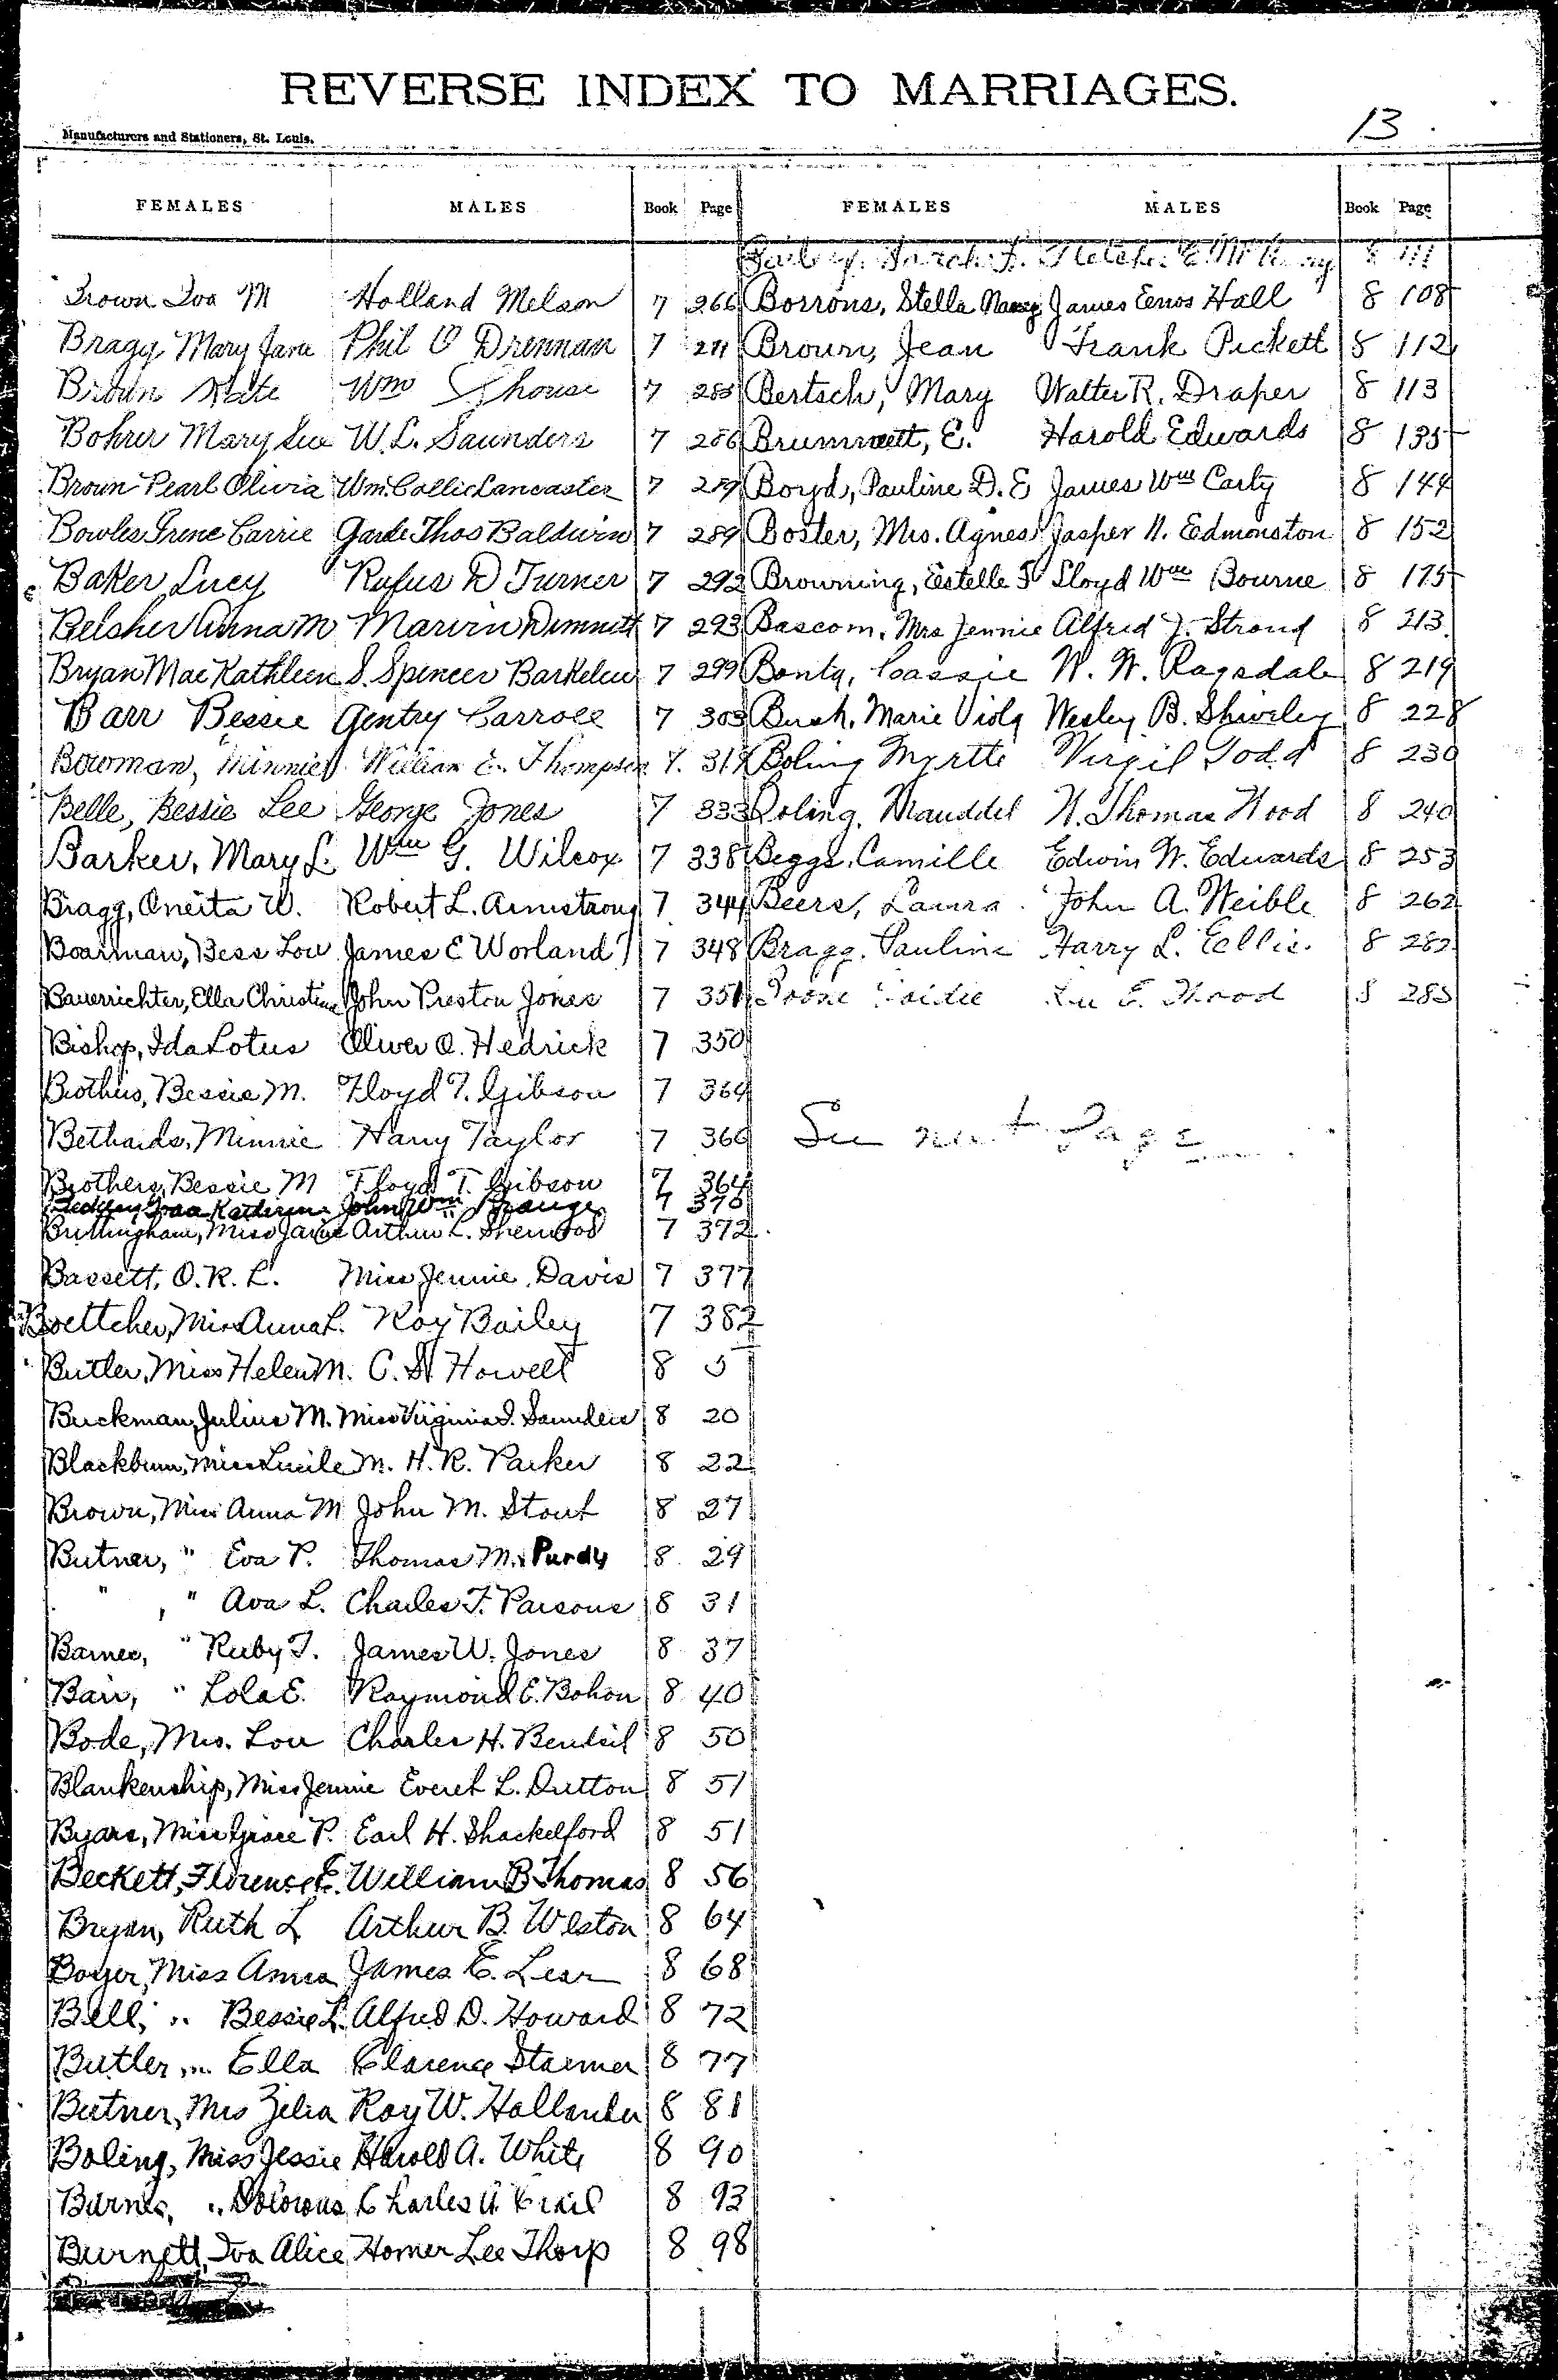 REVERSE INDEX TO MARRIAGES.
13
Manufacturers and Stationers, St. Louis.
FEMALES MALES Book Page FEMALES MALES Book Page
Brown Iva M Holland Melson 7 266
Bragg Mary Jane Phil O Drennan 7
Brown Kate Wm house 7 285
Bohrer Mary Sue W. L. Saunders 7 286
Brown Pearl Olivia Wm. Callie Lancaster 7
Bowles Irene Carrie Thos Baldwin 7 289
Baker Lucy Rufus D Turner 7 292
Belsher Anna M Marvin Dimmitt 7 293
Bryan Mae Kathleen S. Spencer Barkelew 7 299
Barr Bessie Gentry Carroll 7 303
Bowman, Minnie William E. Thompson 7. 317
Belle, Bessie Lee George Jones 7 333
Barker, Mary L. Wm G. Wilcox 7 338
Bragg, Oneita W. Robert L. Armstrong 7 344
Boarman, Bess Lou James E Worland 7 348
Bauerrichter, Ella Christine John Preston Jones 7 351
Bishop, Ida Lotus Oliver O. Hedrick 7 350
Brothers, Bessie M. Floyd T. Gibson 7 364
Bethards, Minnie Harry Taylor 7 366
Brothers, Bessie M Floyd T. Gibson 7 364
Katherine John Wm Prange 7 370
Buttingham, Miss Janie Arthur L. Sherwood 7 372
Bassett, O. R. L. Miss Jennie Davis 7 377
Boettcher, Miss Anna L. Roy Bailey 7 382
Butler, Miss Helen M. C. H Howell 8 5
Buckman, Julius M. Miss Virginia I. Saunders 8 20
Blackburn, Miss Lucile M. H. R. Parker 8 22
Brown, Miss Anna M John M. Stout 8 27
Butner, " Eva P. Thomas M. Purdy 8 29
" , " Ava L. Charles F. Parsons 8 31
Barnes, " Ruby T. James W. Jones 8 37
Barr, " Lola E. Raymond E. Bohon 8 40
Bode, Mrs. Lou Charles H. 8 50
Blankenship, Miss Jennie Everet L. Dutton 8 51
Byars, Miss Grace P. Earl H. Shackelford 8 51
Beckett, Florence E. William B Thomas 8 56
Bryan, Ruth L Arthur B. Weston 8 64
Boyer, Miss Anna James E. Lear 8 68
Bell, " Bessie L. Alfred D. Howard 8 72
Butler, " Ella Clarence Starmer 8 77
Butner, Mrs Zelia Roy W. Hollander 8 81
Boling, Miss Jessie Harold A. White 8 90
Burns, " Charles A. Crail 8 93
Burnett, Iva Alice Homer Lee Thorp 8 98
Sarah 8 111
Borrons, Stella Nancy James Enos Hall 8 108
Brown, Jean Frank Pickett 8 112
Bertsch, Mary Walter R. Draper 8 113
Brummett, E. Harold Edwards 8 135
Boyd, Pauline D. E James Wm Carty 8 144
Boster, Mrs. Agnes Jasper N. Edmonston 8 152
Browning, Estelle F Lloyd Wm Bourne 8 175
Bascom, Mrs Jennie Alfred J. Strond 8 213
Bonta, Cassie W. W. Ragsdale 8 219
Bush, Marie Viola Wesley B. Shiveley 8 228
Boling Myrtle Virgil Todd 8 230
Boling, Mauddel W. Thomas Wood 8 240
Beggs, Camille Edwin W. Edwards 8 253
Beers, Laura John A. Weible 8 262
Bragg, Pauline Harry L. Ecllis. 8 282
Boone 8 285
See next Page